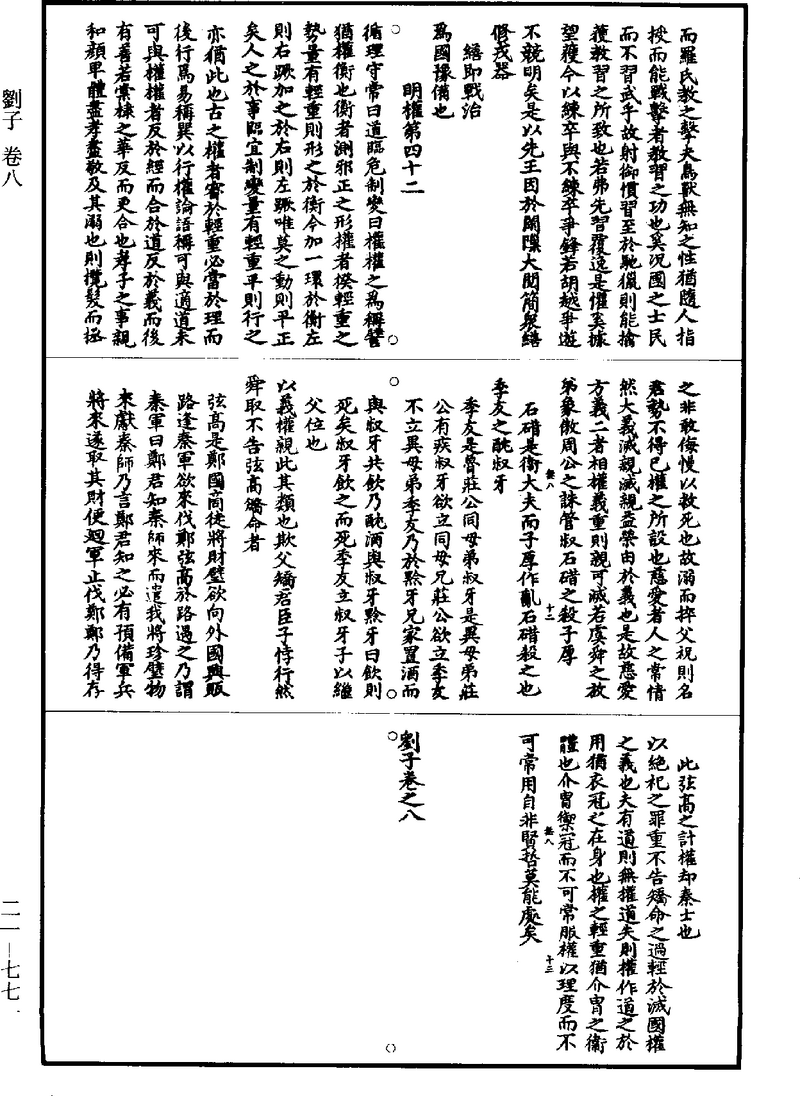 劉子 卷八
而羅氏教之擊夫鳥獸無知之性猶隨人指
授而能戰擊者教習之功也奚況國之士民
而不習武乎故射御慣習至於馳獵則能擒
獲教習之所致也若弗先習覆逸是懼奚據
望獲今以練卒與不練卒爭鋒若胡越爭遊
不競明矣是以先王因於閑隙大閱簡衆繕
修戎器
繕即戰治
爲國豫備也
明權第四十二
循理守常曰道臨危制變曰權權之爲稱譬
猶權衡也衡者測邪正之形權者揆輕重之
勢量有輕重則形之於衡今加一環於衡左
則右蹶加之於右則左蹶唯莫之動則平正
矣人之於事臨宜制變量有輕重平則行之
亦猶此也古之權者審於輕重必當於理而
後行焉易稱巽以行權論語稱可與適道未
可與權權者反於經而合於道反於義而後
有善若棠棣之華反而更合也孝子之事親
和顏卑體盡孝盡敬及其溺也則攬髮而拯
之非敢侮慢以救死也故溺而捽父祝則名
君勢不得已權之所設也慈愛者人之常情
然大義滅親滅親益榮由於義也是故慈愛
方義二者相權義重則親可滅若虞舜之放
弟象傲周公之誅管叔石碏之殺子厚
石碏是衛大夫而子厚作亂石碏殺之也
季友之酖叔牙
季友是魯莊公同母弟叔牙是異母弟莊
公有疾叔牙欲立同母兄莊公欲立季友
不立異母弟季友乃於黔牙兄家置酒而
與叔牙共飲乃酖酒與叔牙黔牙曰飲則
死矣叔牙飲之而死季友立叔牙子以繼
父位也
以義權親此其類也欺父矯君臣子悖行然
舜取不告弦高矯命者
弦高是鄭國商徒將財璧欲向外國興販
路逢秦軍欲來伐鄭弦高於路遇之乃謂
秦軍曰鄭君知秦師來而遣我將珍璧物
來獻秦師乃言鄭君知之必有預備軍兵
將來遂取其財便迴軍止伐鄭鄭乃得存
此弦高之計權却秦士也
以絕祀之罪重不告矯命之過輕於滅國權
之義也夫有道則無權道失則權作道之於
用猶衣冠之在身也權之輕重猶介冑之衞
體也介冑禦冦而不可常服權以理度而不
可常用自非賢哲莫能處矣
劉子卷之八
二一—七七